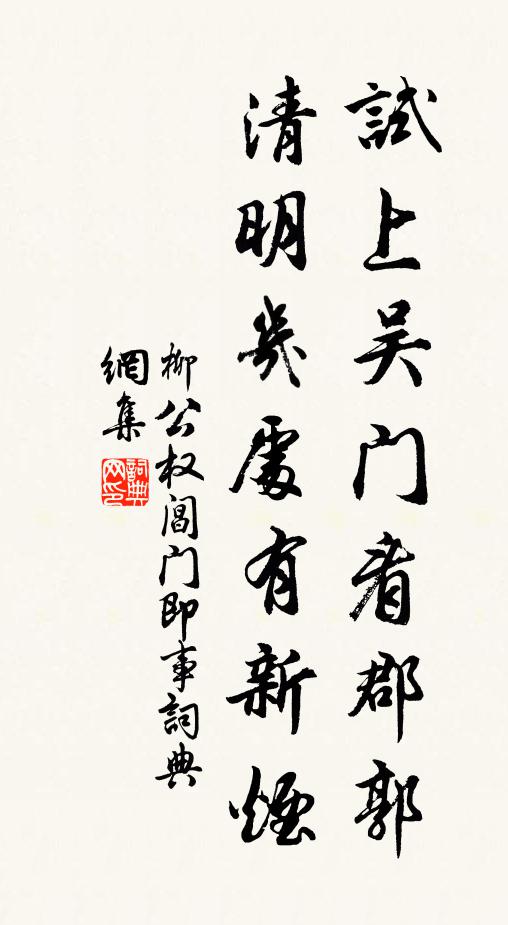 試上吴门看郡郭
清明幾處有新煙
柳公权阊门即事詞典
網集
詞典
网印